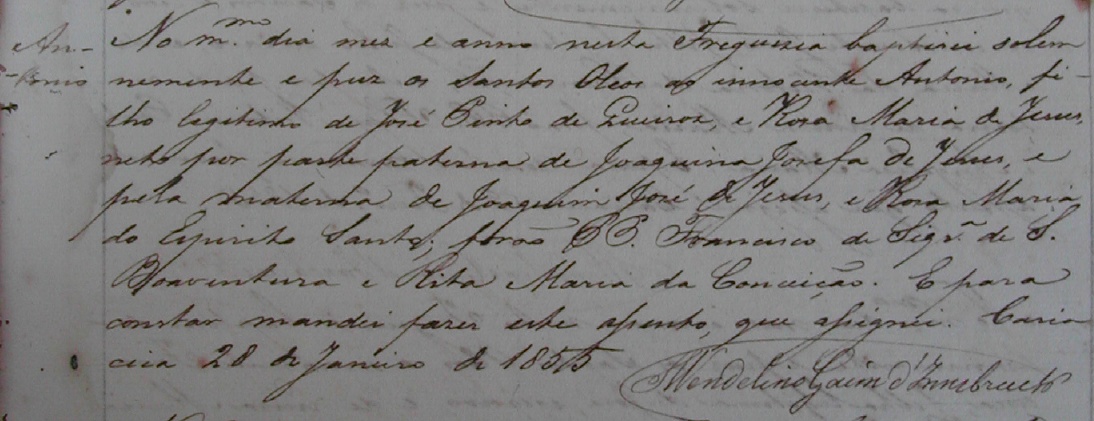 An- No mmo. dia mez e anno nesta Freguezia baptizei solem
-tonio nemente e puz os Santos Oleos ao innocente Antonio, fi-
lho legitimo de José Pinto de Queiroz, e Rosa Maria de Jesus,
neto por parte paterna de Joaquina Josefa de Jesus, e
pela materna de Joaquim José de Jesus, e Rosa Maria
do Espirito Santo; forão PP. Francisco de Siqra. de S.
Boaventura e Rita Maria da Conceição. E para
constar mandei fazer este assento, que assignei. Caria
cica 28 de Janeiro de 1855
Wendelino Gaim d'Innsbruck